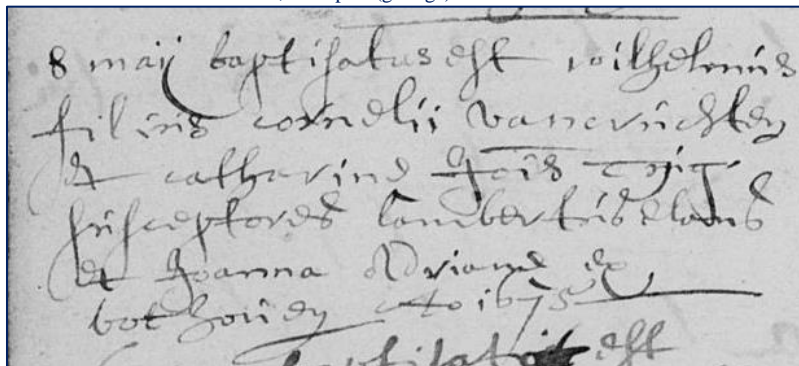 8 maij baptisatus est wilhelmus
filius cornelii vancruchten
et catharine Jois
susceptores lambertus
et Joanna Adriane ex
bot 1675
baptisat est